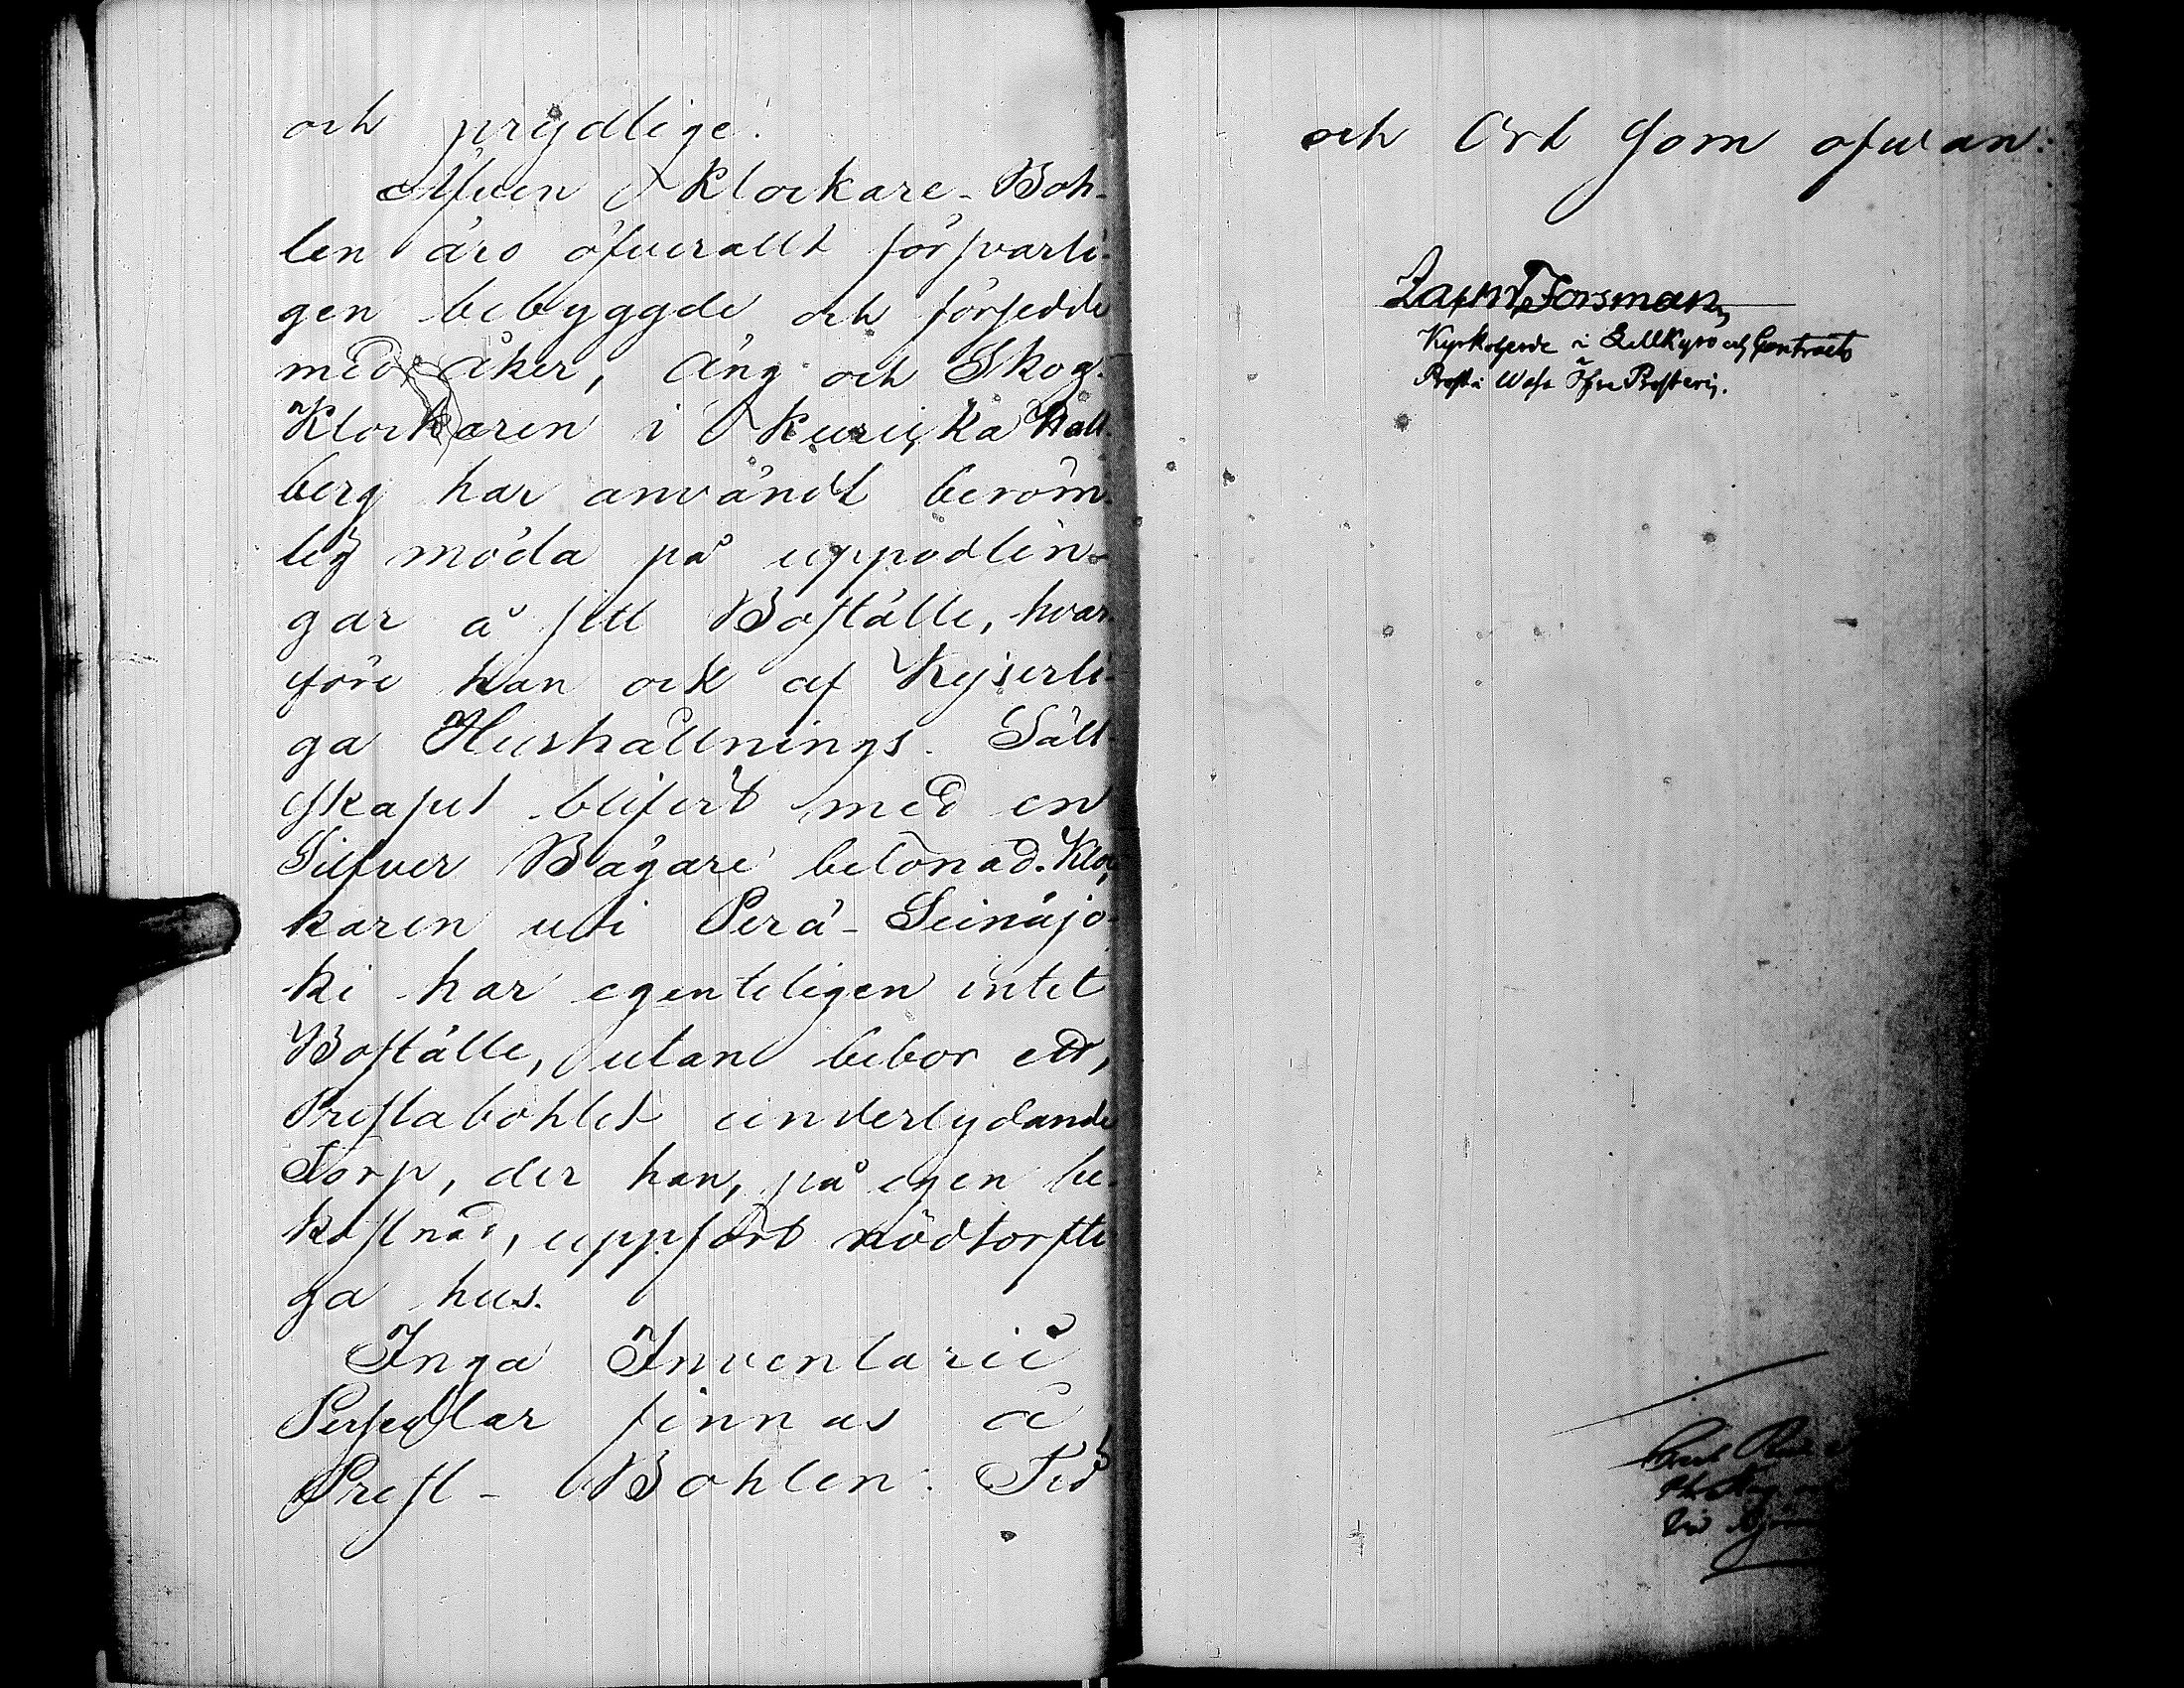 och prydlige.
Äfven Klockare-Boh-
len äro öfverallt försvarli-
gen bebyggde och försedde
med åker, äng och Skog.
Klockaren i Kurikka Wall-
berg har användt beröm-
lig möda på uppodlin-
gar å sitt Boställe, hvar-
före han ock af Kejserli-
ga Hushållnings-Säll-
skapet blifvit med en
Silfver Bägare belönad. Kloc-
karen uti Perä-Seinäjo-
ki har egenteligen intet
Boställe, utan bebor ett,
Prestabohlet underlydande
Torp, der han, på egen be-
kostnad, uppfört nödtorfti-
ga hus.
Inga Inventarii
Persedlar finnas å
Prest-Bohlen. Tid
och Ort som ofvan:
Forsman
Kyrkoherde i Lillkyro och Contracts
Prost i Wasa Öfre Prosteri.